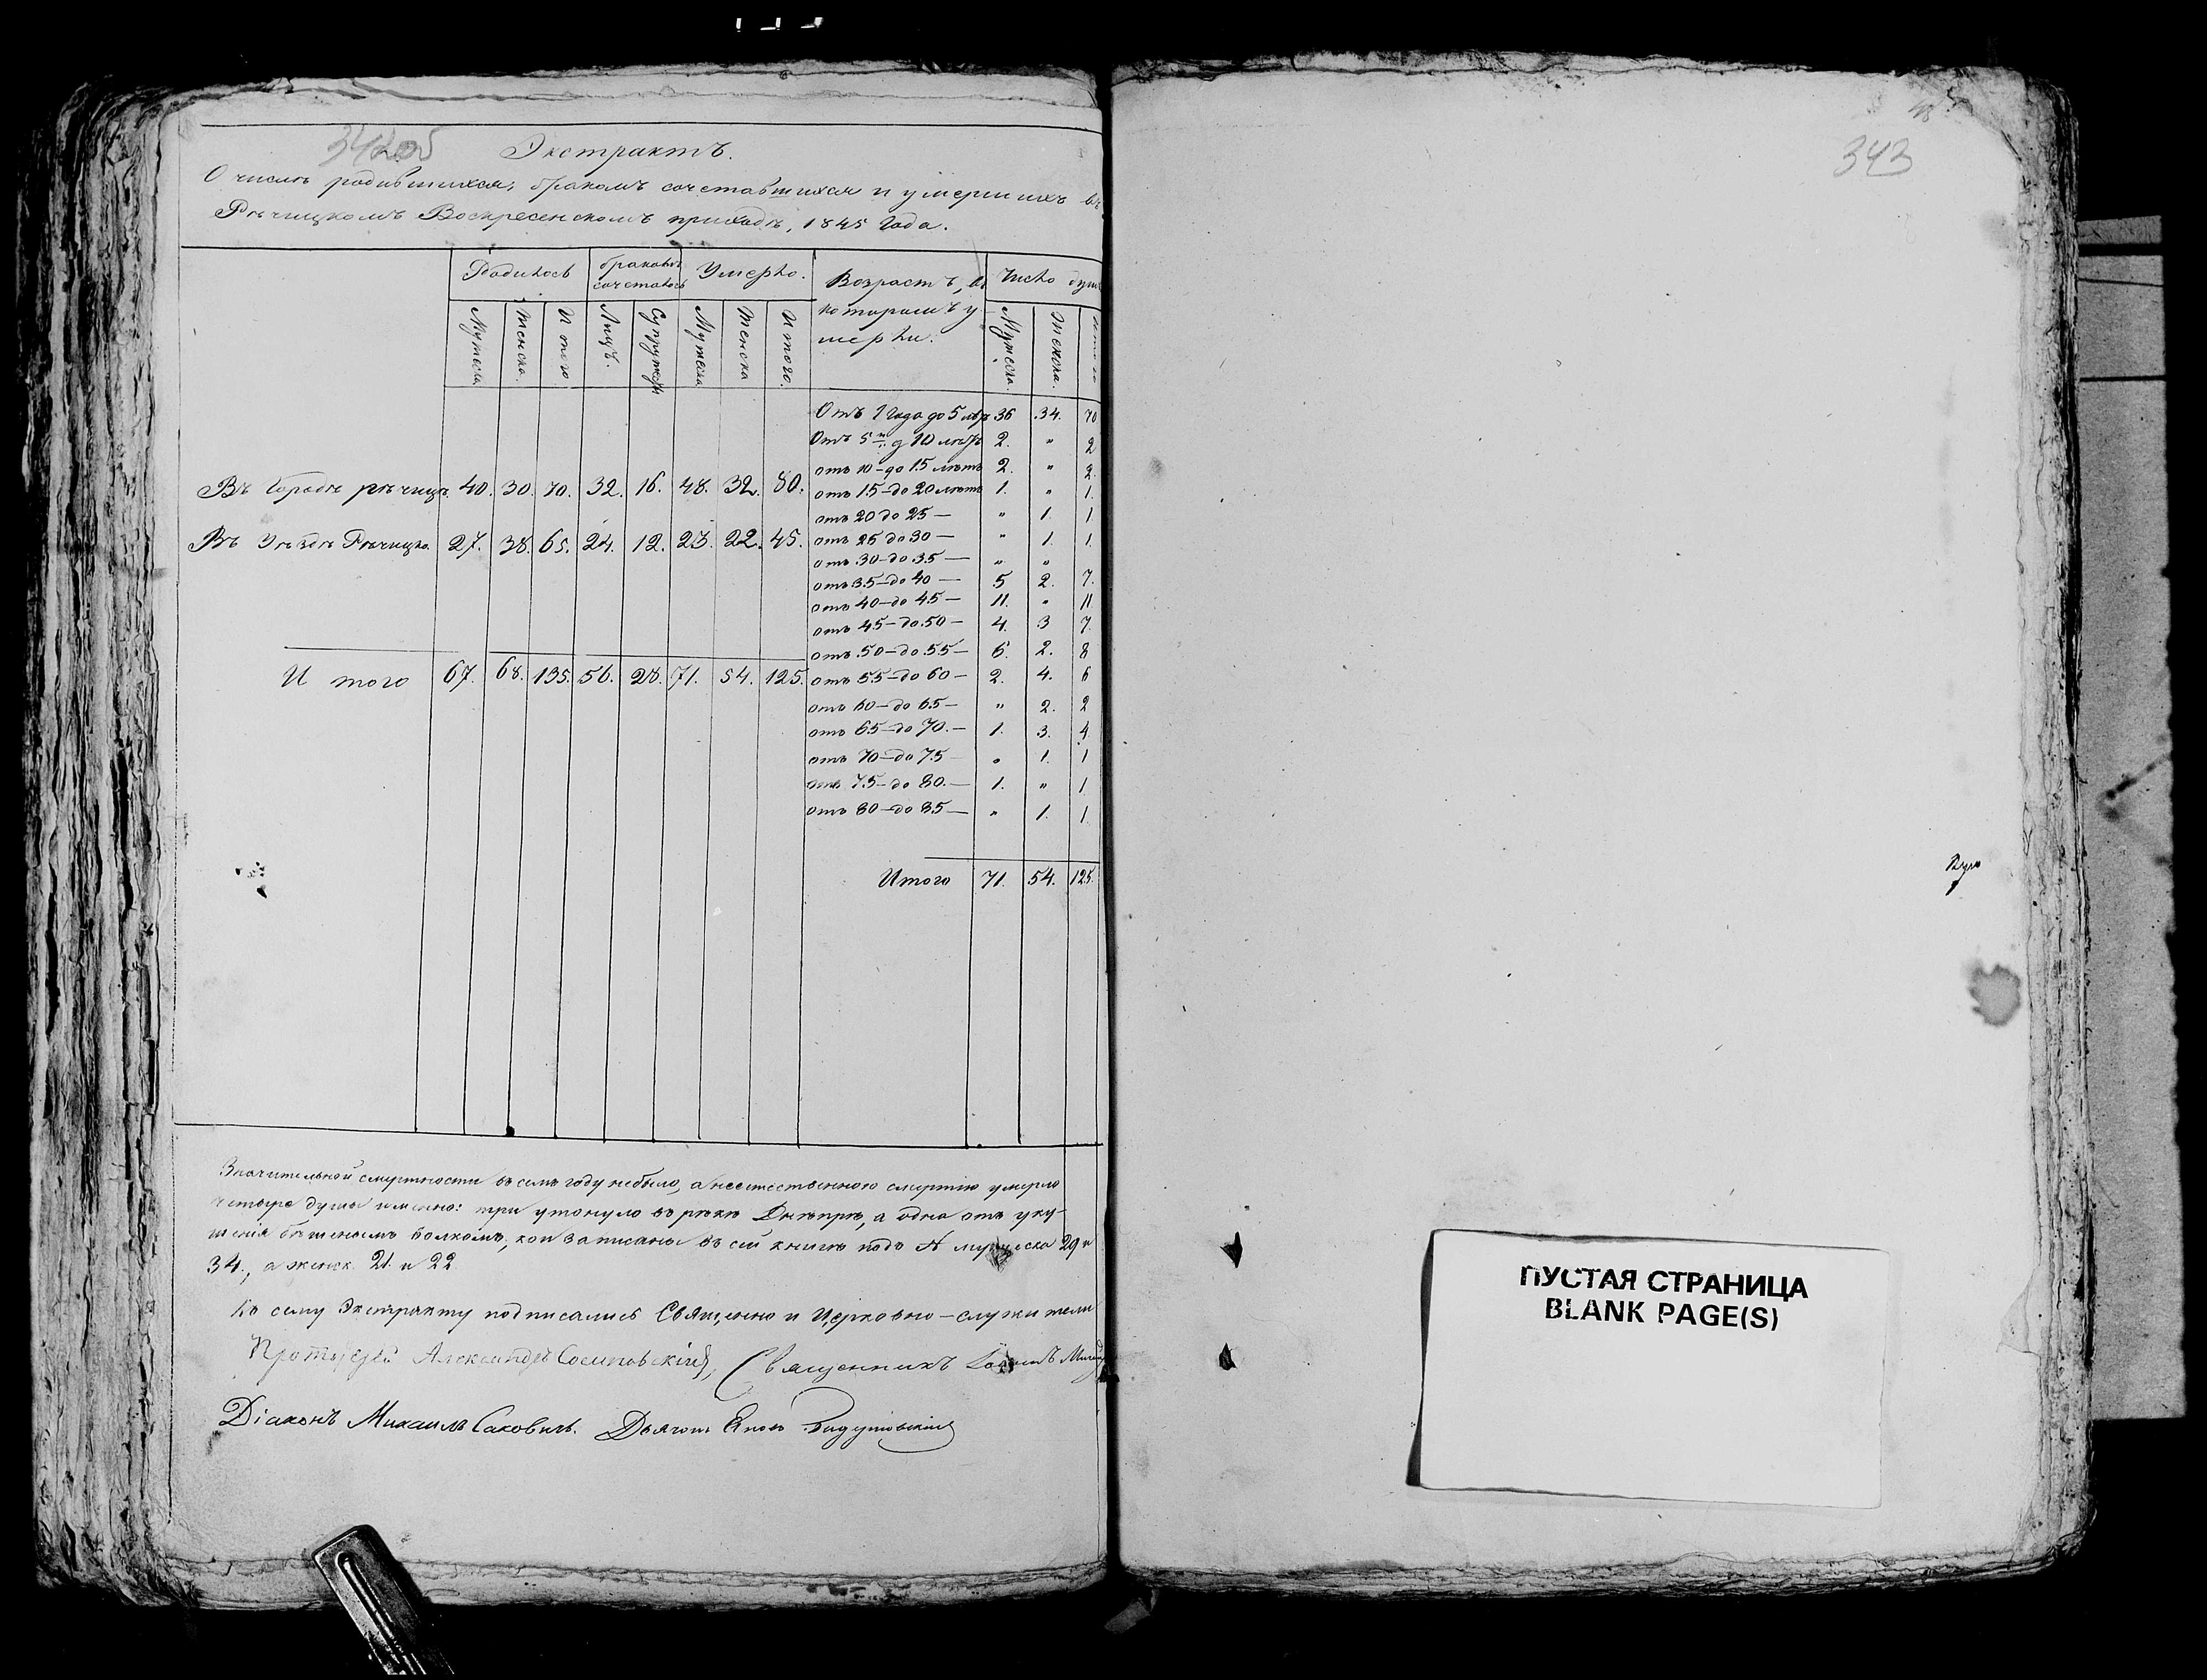 342об
Экстрактъ.
О числѣ родившихся, бракомъ сочетавшихся и умершихъ въ
Рѣчицкомъ Воскресенскомъ приходѣ, 1845 года.
Родилось бракомъ сочеталось Умерло. Возрастъ, въ которомъ умерли. Число душъ
Мужеска Женска. Итого Лицъ. Супружествъ Мужеска Женска Итого. Мужеска. Женска. Итого
Отъ 1 года до 5 лѣтъ 36 34. 70
Отъ 5 и до 10 лѣтъ 2. " 2
отъ 10 – до 15 лѣтъ 2. " 2.
Въ Городѣ рѣчицѣ 40. 30. 70. 32. 16. 48. 32. 80. отъ 15 – до 20 лѣтъ 1. " 1.
отъ 20 до 25 — " 1. 1
Въ Уѣздѣ Рѣчицко. 27. 38. 65. 24. 12. 23. 22. 45. отъ 25 до 30 — " 1. 1.
отъ 30 – до 35 — " "
отъ 35 – до 40 — 5 2. 7.
отъ 40 – до 45 — 11. " 11.
отъ 45 – до 50 — 4. 3 7.
отъ 50 – до 55 — 6. 2. 8
Итого 67. 68. 135. 56. 28. 71. 54. 125. отъ 55 – до 60 — 2. 4. 6
отъ 60 – до 65 — " 2. 2
отъ 65 – до 70. — 1. 3. 4.
отъ 70 – до 75 " 1. 1
отъ 75 – до 80. — 1. " 1
отъ 80 – до 85 — " 1. 1.
Итого 71. 54. 125.
Значительной смертности въ семъ году небыло, а неестественною смертію умерло
четыре душы именно: три утонуло въ рѣкѣ Днѣпрѣ, а одна отъ уку-
шенія бѣшенымъ волкомъ, кои записаны въ сей книгѣ подъ № мужеска 29 и
34., а женск. 21. и 22
Къ сему Экстракту подписались Священно и Церковно – служители
Протоіерей Александръ Сосиновскій, Священникъ
Діаконъ Михаилъ Саковичъ. Дьячокъ Яковъ
343
ПУСТАЯ СТРАНИЦА
BLANK PAGE(S)